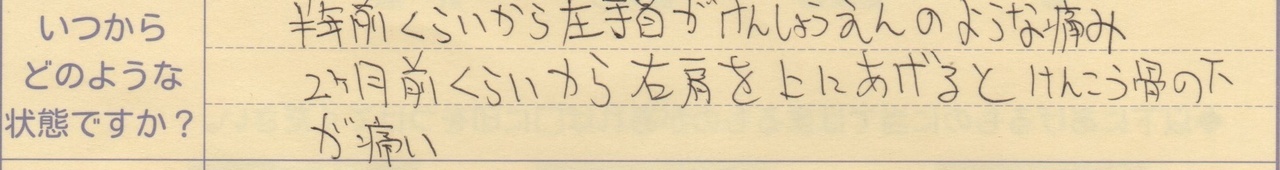 いつから
どのような
状態ですか？
半年前くらいから左手首がけんしょうえんのような痛み
2ヶ月前くらいから右肩を上にあげるとけんこう骨の下
が痛い